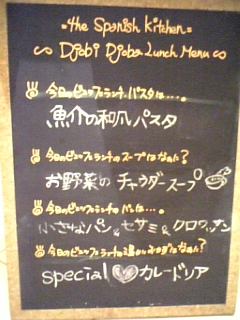 the Spanish Kitchen
Djobi Djoba Lunch Menu
今日のビュッフェランチ、パスタは・・・。
魚介の和風パスタ
今日のビュッフェランチのスープはなぁに?
お野菜の チャウダースープ
今日のビュッフェランチのパンは・・・。
小さなパン&セサミ&クロワッサン
今日のビュッフェランチの温かいメニューはなぁに?
special カレードリア